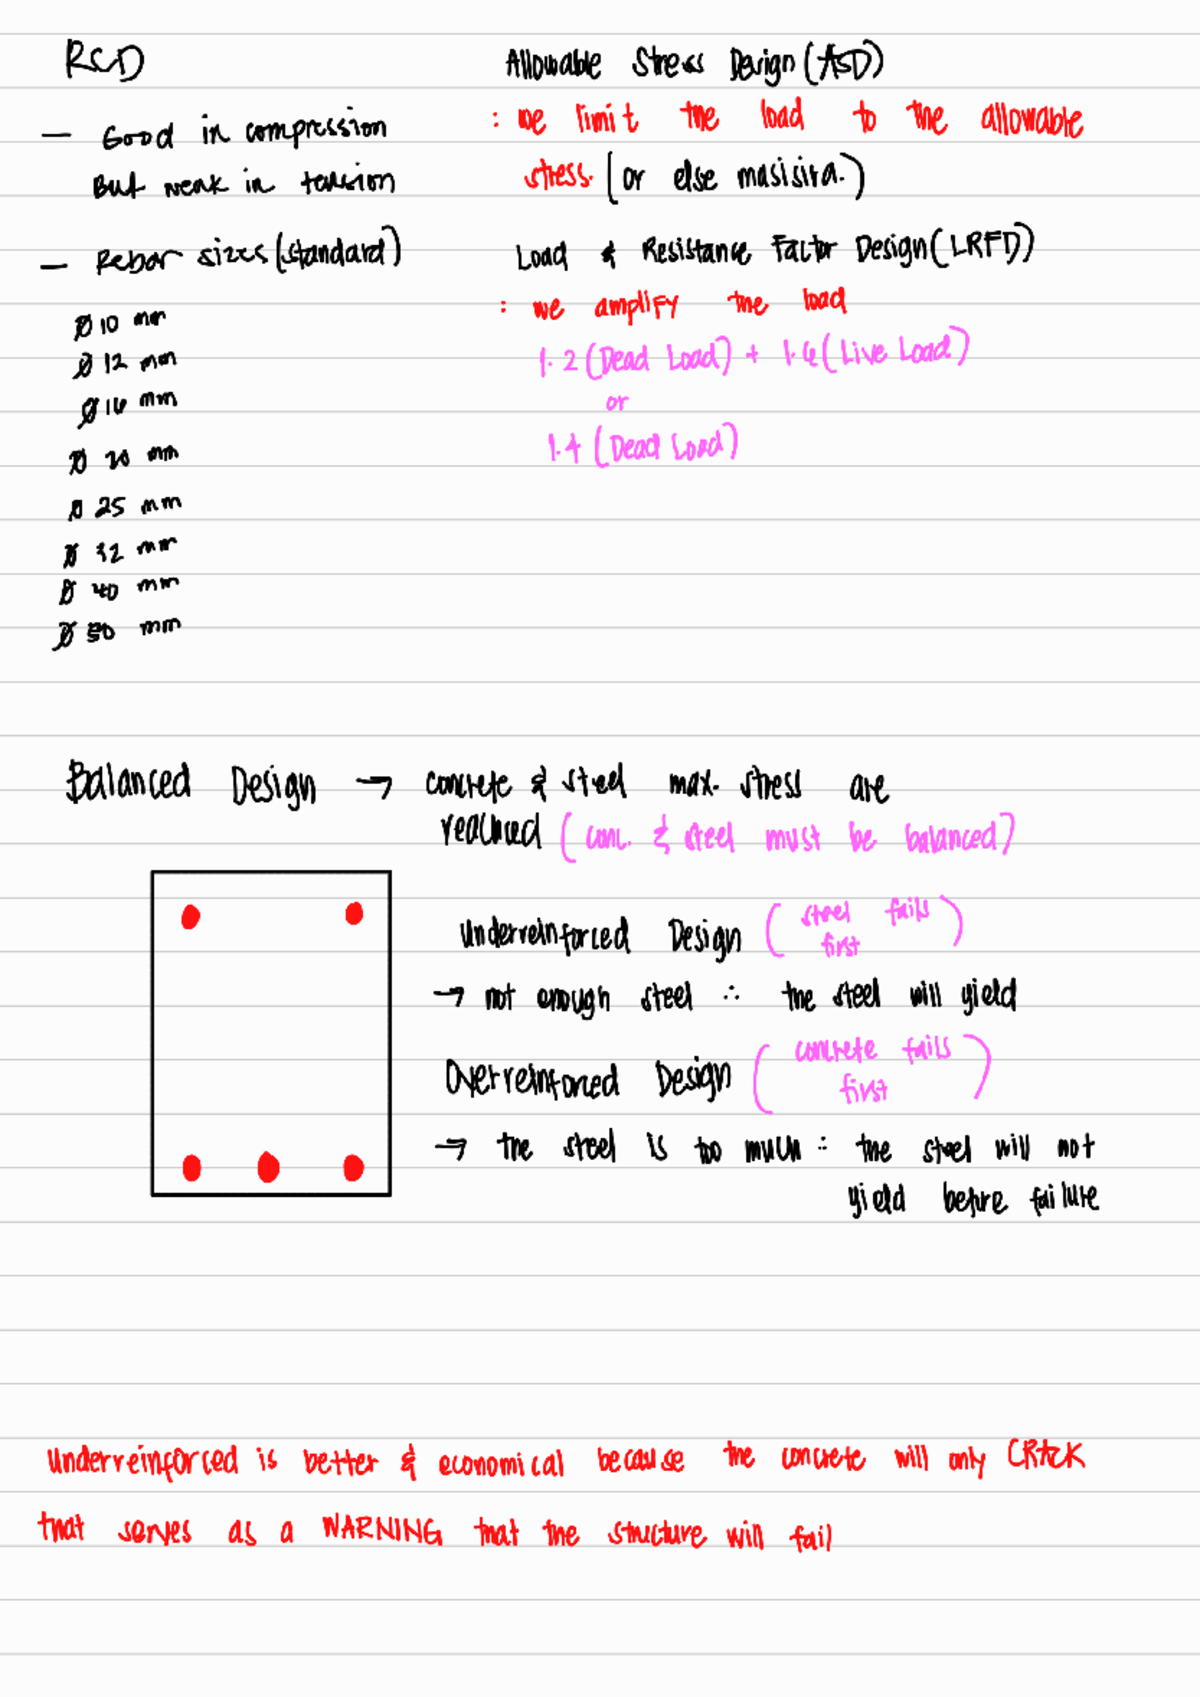 RCD
— Good in compression
But weak in tension
— Rebar sizes (standard)
Ø 10 mm
Ø 12 mm
Ø 16 mm
Ø 20 mm
Ø 25 mm
Ø 32 mm
Ø 40 mm
Ø 50 mm
Allowable Stress Design (ASD)
: we limit the load to the allowable
stress. (or else masisira.)
Load & Resistance Factor Design (LRFD)
: we amplify the load
1.2 (Dead Load) + 1.6 (Live Load)
or
1.4 (Dead Load)
Balanced Design → concrete & steel max. stress are
reached (conc. & steel must be balanced)
Underreinforced Design (steel fails
first)
→ not enough steel ∴ the steel will yield
Overreinforced Design (concrete fails
first)
→ the steel is too much ∴ the steel will not
yield before failure
Underreinforced is better & economical because the concrete will only CRACK
that serves as a WARNING that the structure will fail